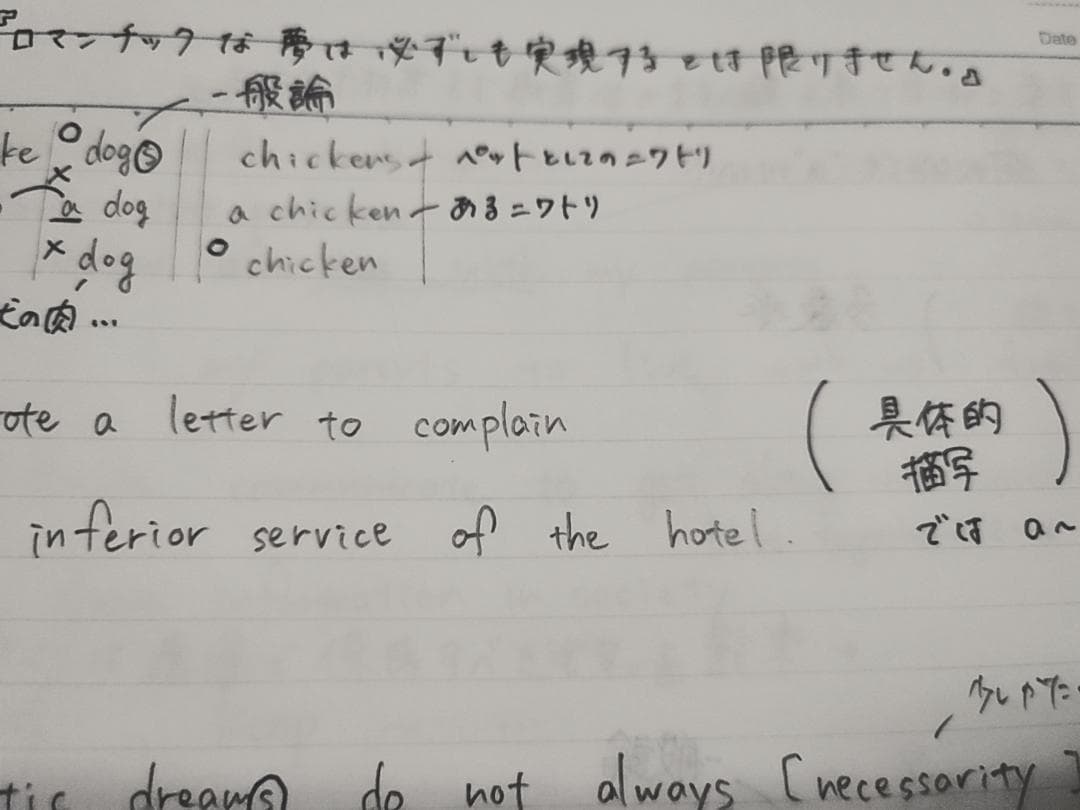 『ロマンチックな夢は必ずしも実現するとは限りません。』
Date
一般論
ke ○ dogⓢ chickens ペットとしてのニワトリ
× a dog a chicken あるニワトリ
× dog ○ chicken
犬の肉…
ote a letter to complain
(具体的
描写)
inferior service of the hotel. では a~
少しかた
tic dreamⓢ do not always [necessarity]